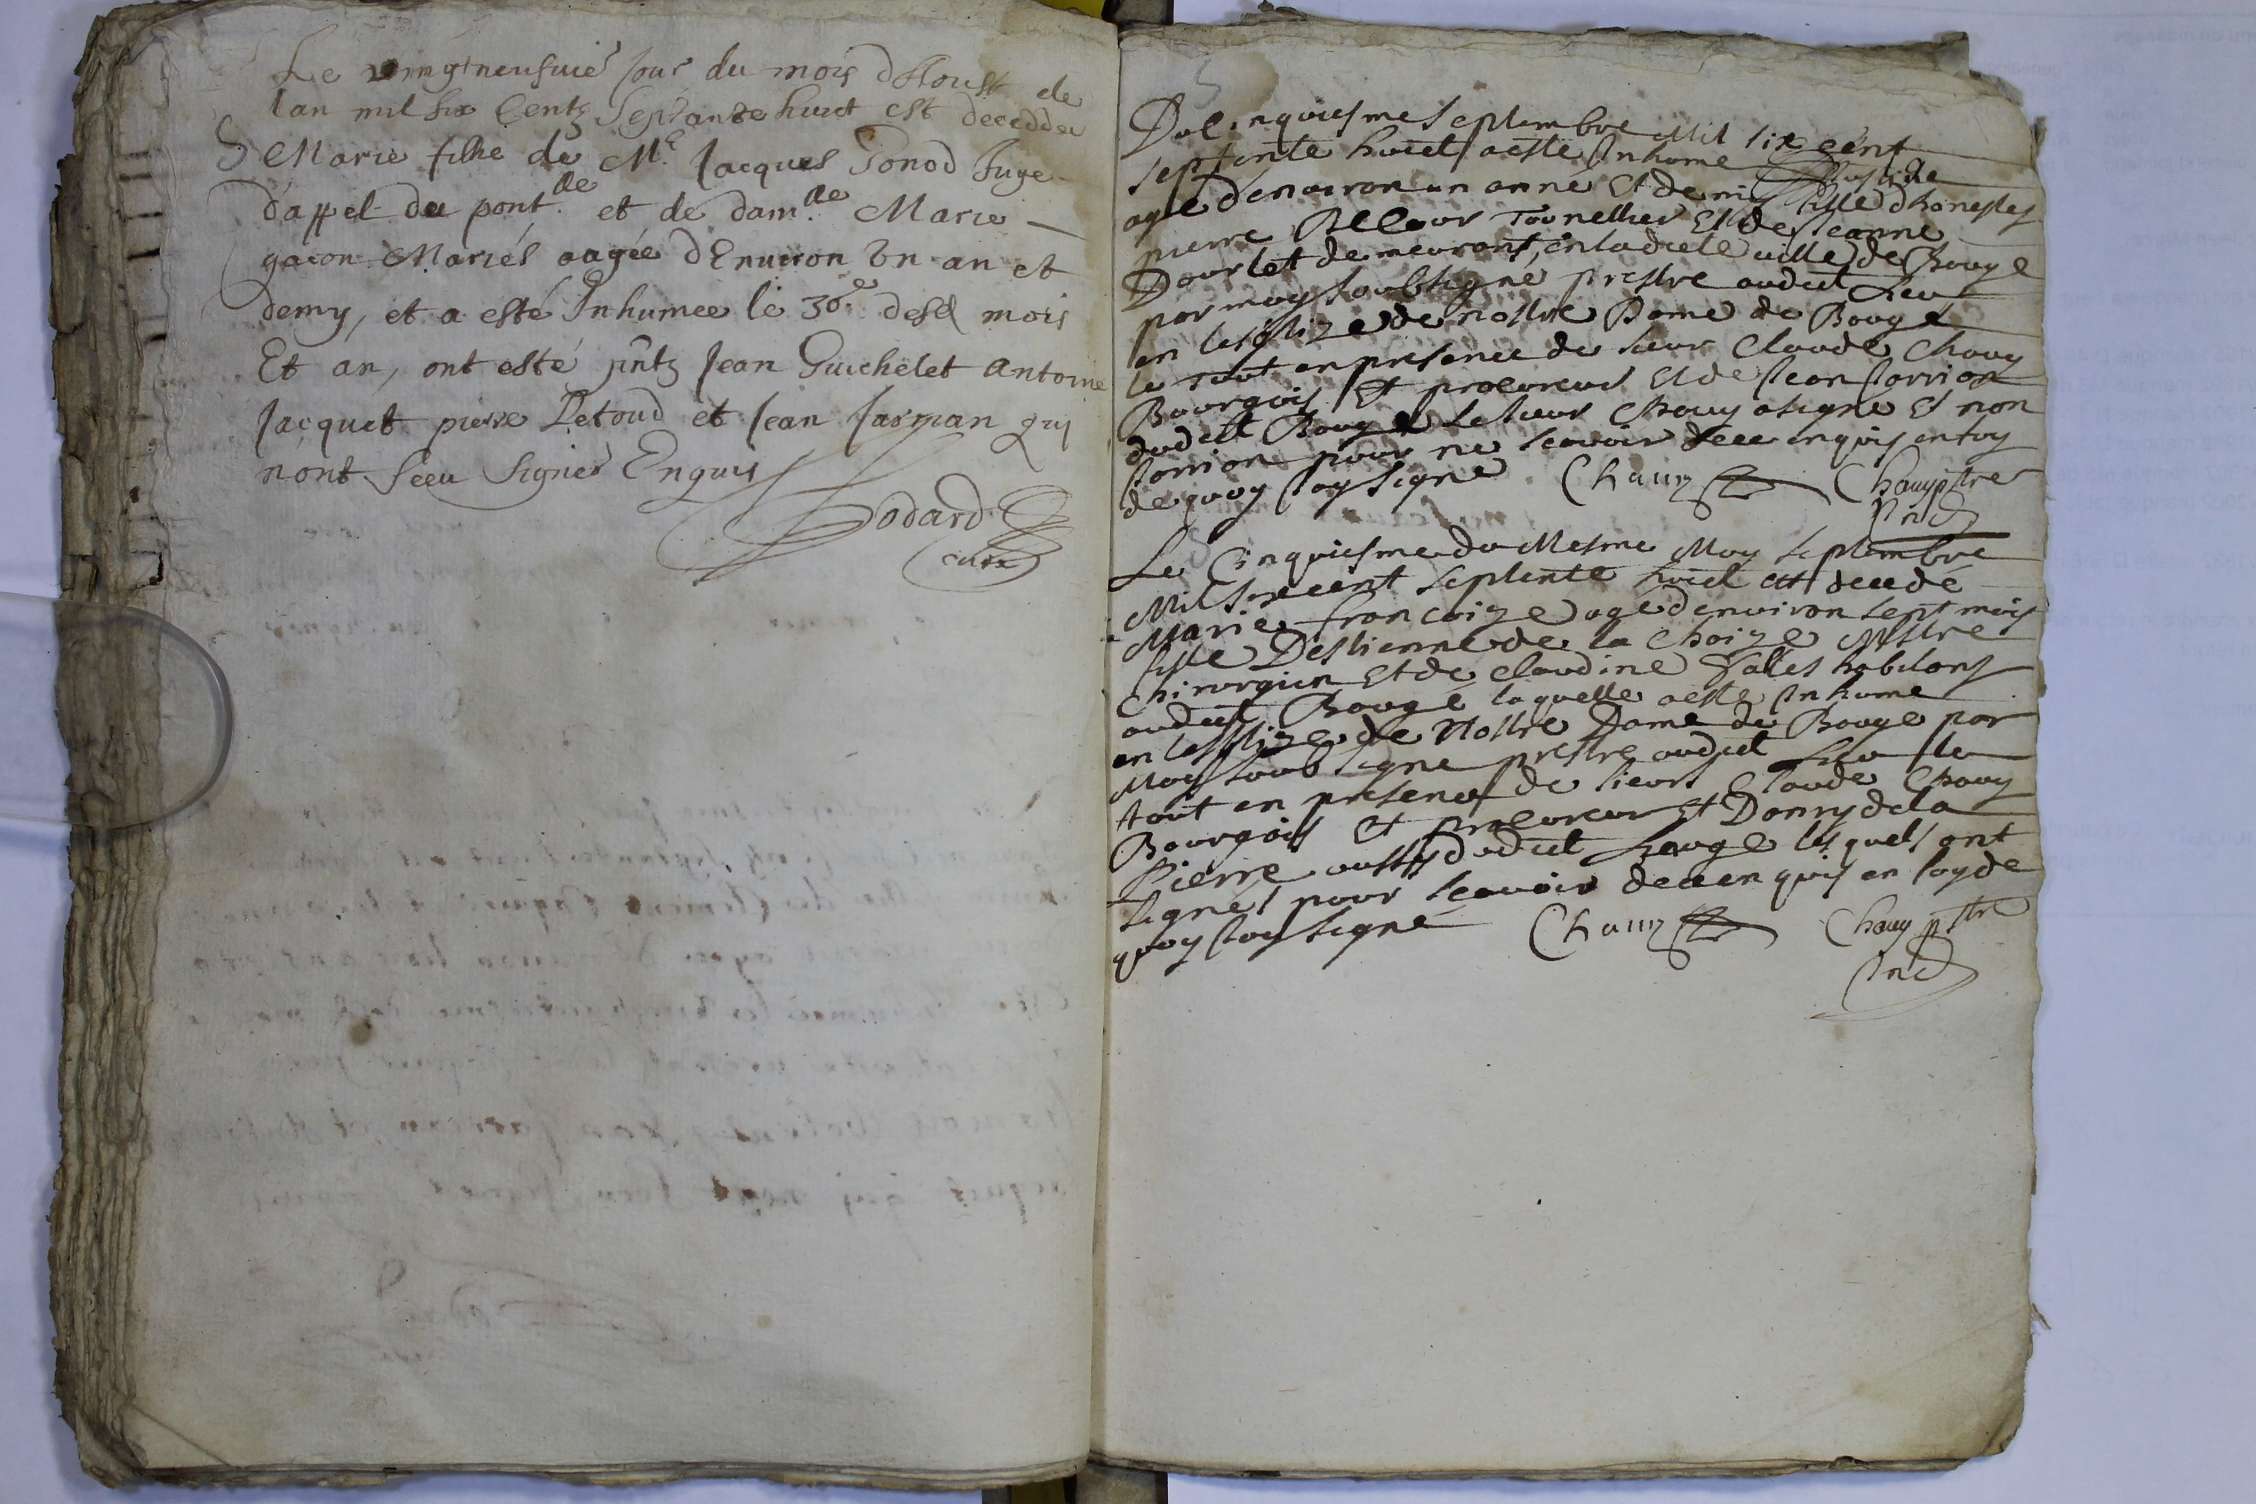 Le vingtneufuiè Jour du mois d'Aoust de
lan mil six Centz Septante huict est deceddée
Marie filhe de Me. Jacques Gonod Juge
d'appel du pont.de et de dam.lle Marie
gacon Mariés aagée d'Enuiron Vn an et
demy, et a esté Inhumee le 30.e desd mois
Et an, ont esté pñtz Jean Guichelet Antoine
Jacquet pierre Letoud et Jean Jasman qui
n'ont sceu signer Enquis
Godard
curé
Du Cinquiesme septembre Mil six cent
septente huict a esté Inhumé
agé d'enuiron un anné Et demis fille d'honestes
pierre Bellour Tounellier Et de Jeanne
Dourlet demeurant en ladicte uille de Baugé
par moy soubsigné prestre audict Lieu
en lesglize de nostre Dame de Baugé
le tout en presence de sieur Claude Chauy
Bourgois Et procureur Et de Jean Jorrion
dudict Baugé Le sieur Chauy a signé Et non
Jorrion pour ne scauoir de ce enquis en foy
de quoy Jay signé Chauy Chauy pstre
Ind
Le Cinquiesme du Mesme Moy septembre
Mil six cent septente huict est decedé
Marie francoize agé d'enuiron sept mois
fille D'estienne de la Choize Mestre
Chirurgien Et de Claudine Valles habitans
audict Baugé laquelle a esté Inhumé
en lesglize de Nostre Dame de Baugé par
Moy soubsigné prestre audict Lieu le
tout en presence de sieur Claude Chauy
Bourgois Et procureur Et Danny de la
Pierre aussy dudict Baugé lesquels ont
signés pour scauoir de ce enquis en foy de
quoy Jay signé Chauy Chauy pstre
Ind